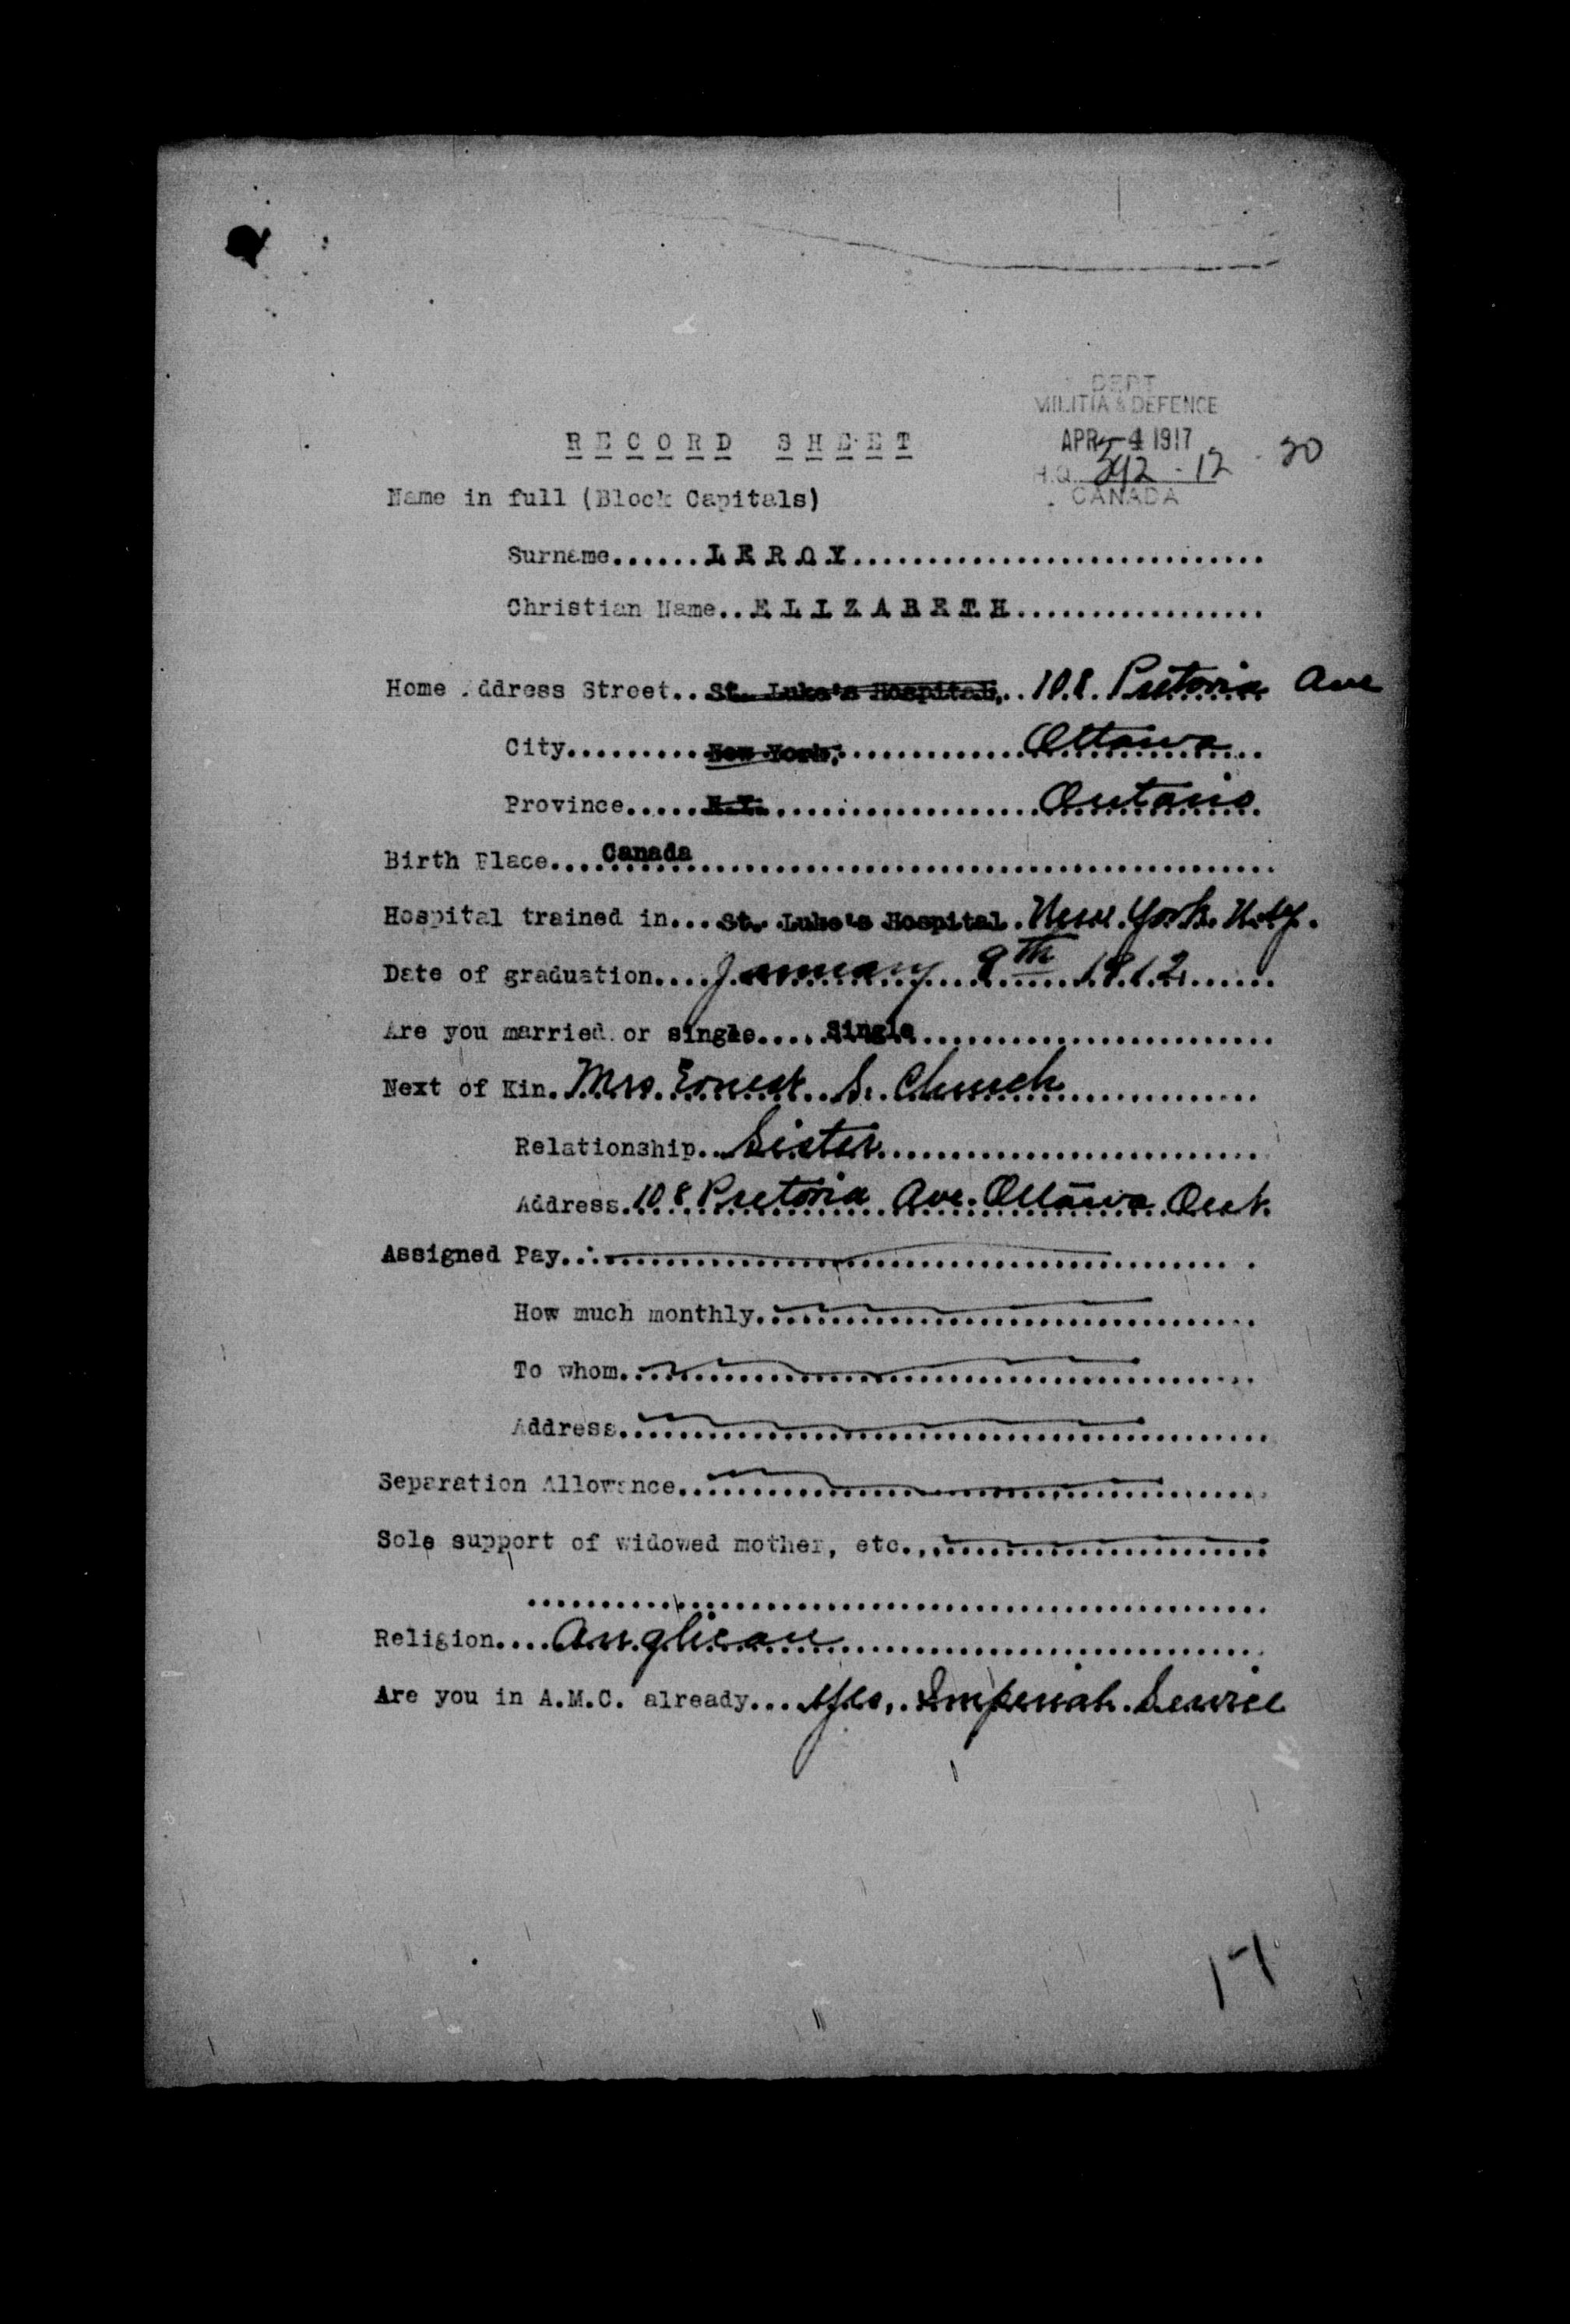 DEPT
MILITIA & DEFENCE
RECORD SHEET
APR -4 1917
H.Q. 592-12-20
CANADA
Name in full (Block Capitals)
Surname......LEROY..............................
Christian Name..ELIZABETH.................
Home Address Street..St. Luke's Hospital,..108 Pretoria Ave
City..........New York,.............Ottawa...
Province.....N.Y....................Ontario.
Birth Place....Canada........................................
Hospital trained in...St. Luke's Hospital.New York. N.Y.
Date of graduation....January 9th 1912......
Are you married or single.....Single.........................
Next of Kin.Mrs. Ernest S. Church..............
Relationship..Sister..........................
Address.108 Pretoria Ave. Ottawa Ont.
Assigned Pay.............................................
How much monthly..................................
To whom...........................................
Address............................................
Separation Allowance.......................................
Sole support of widowed mother, etc.,.......................
..................................................
Religion....Anglican.............................
Are you in A.M.C. already....Yes, Imperial Service
17